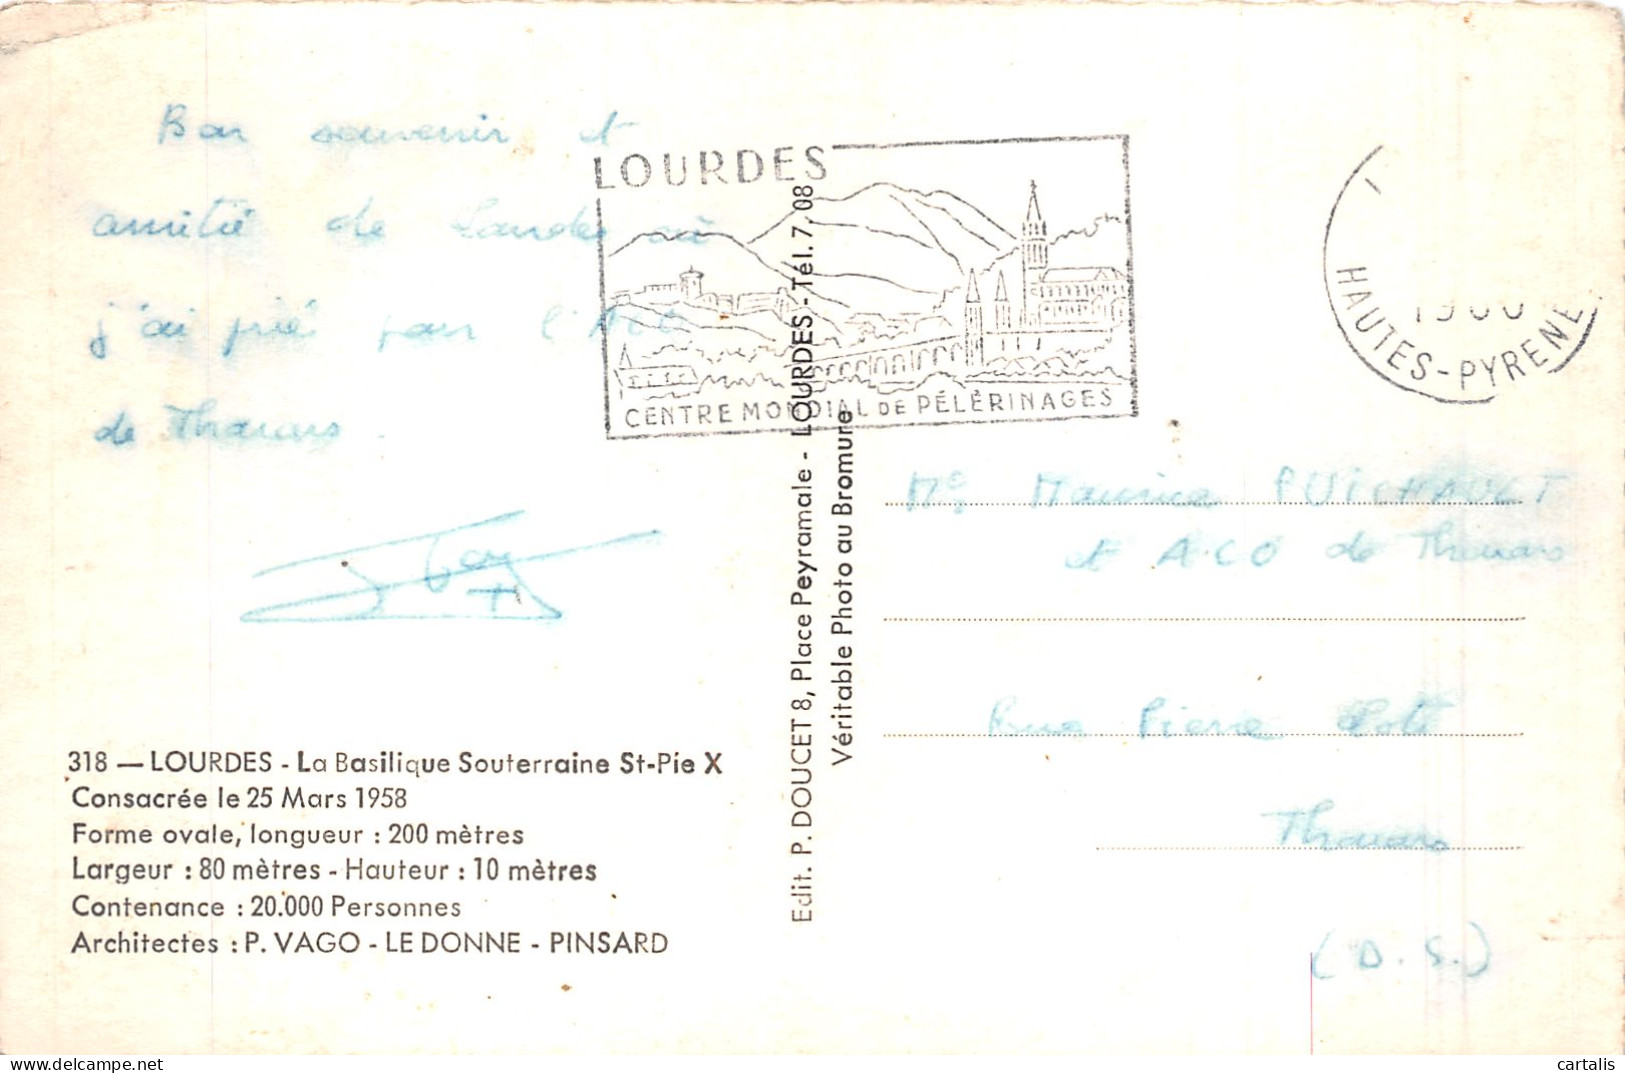 Bon souvenir et
amitié de Lourdes où
j'ai prié pour l'ACO
de Thouars.
318 — LOURDES - La Basilique Souterraine St-Pie X
Consacrée le 25 Mars 1958
Forme ovale, longueur : 200 mètres
Largeur : 80 mètres - Hauteur : 10 mètres
Contenance : 20.000 Personnes
Architectes : P. VAGO - LE DONNE - PINSARD
Edit. P. DOUCET 8, Place Peyramale - LOURDES - Tél. 7.08
Véritable Photo au Bromure
LOURDES
CENTRE MONDIAL DE PÉLÈRINAGES
HAUTES-PYRENE
Maurice PUICHAULT
et ACO de Thouars
Rue Pierre
Thouars
(D.S.)
cartalis